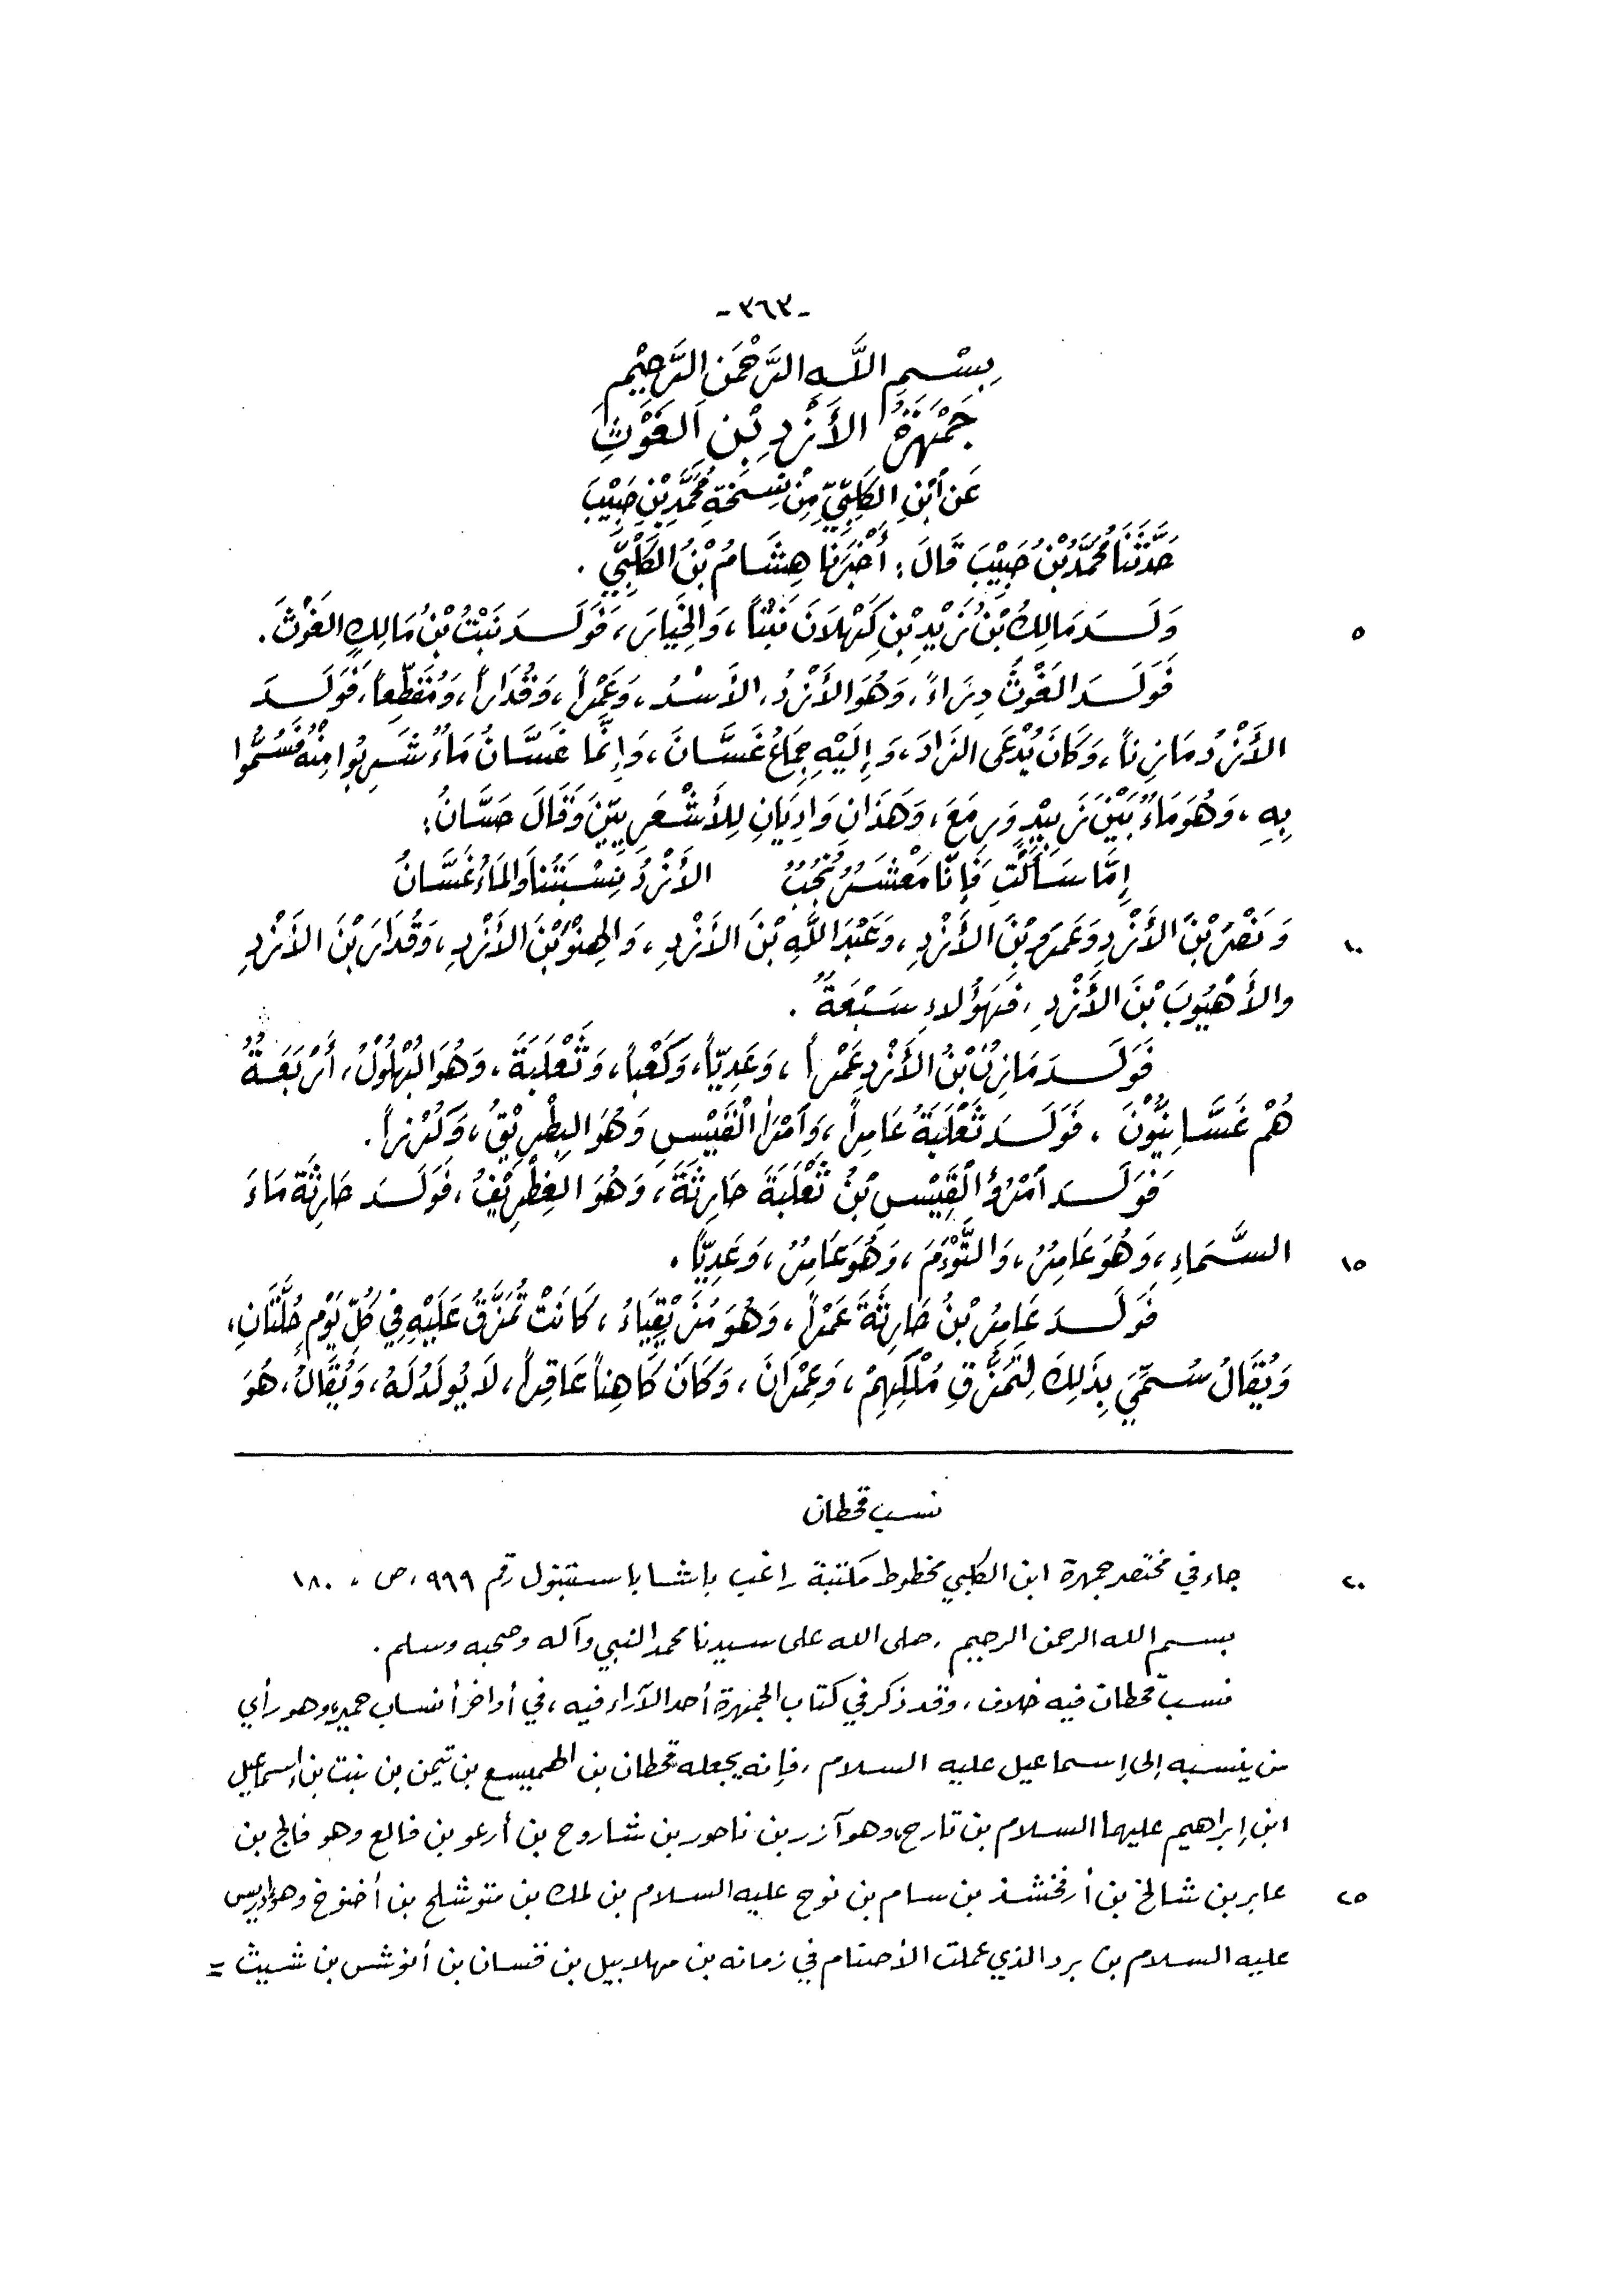 -٣٦٣-
بِسْمِ اللَّهِ الرَّحْمَنِ الرَّحِيْمِ
جَمْهَرَةُ الأَزْدِ بْنِ الغَوْثِ
عَن ابْنِ الكَلْبِيِّ مِنْ نُسْخَةِ مُحَمَّدِ بْنِ حَبِيْبَ
حَدَّثَنَا مُحَمَّدُ بْنُ حَبِيْبَ قَالَ: أَخْبَرَنا هِشَامُ بْنُ الكَلْبِيِّ .
٥ وَلَـدَ مَالِكُ بْنُ زَيْدِ بْنِ كَهْلاَنَ نَبْتاً، وَالخِيَارَ، فَوَلَـدَ نَبْتُ بْنُ مَالِكٍ الغَوْثَ.
فَوَلَـدَ الغَوْثُ دِرَاءً، وَهُوَ الأَزْدُ، الأَسْدُ، وَعَمْراً، وَقُدَاراً، وَمُقَطِّعاً، فَوَلَـدَ
الأَزْدُ مَازِناً، وَكَانَ يُدْعَى الزَادَ، وَإِلَيْهِ جِمَاعُ غَسَّانَ، وَإِنَّمَا غَسَّانُ مَاءٌ شَرِبُوا مِنْهُ فَسُمُّوا
بِهِ، وَهُوَ مَاءٌ بَيْنَ زَبِيْدٍ وَرِمَعَ، وَهَذَانِ وَادِيَانِ لِلأَشْعَرِيِّيْنَ وَقَالَ حَسَّانُ:
إِمَّا سَأَلْتِ فَإِنَّا مَعْشَرٌ نُجُبٌ الأَزْدُ نِسْبَتُنَا وَالمَاءُ غَسَّانُ
١٠ وَنَصْرَ بْنَ الأَزْدِ وَعَمْرَو بْنَ الأَزْدِ، وَعَبْدَ اللَّهِ بْنَ الأَزْدِ، وَالهِنْوَ بْنَ الأَزْدِ، وَقُدَارَ بْنَ الأَزْدِ
والأَهْيُوبَ بْنَ الأَزْدِ، فَهَؤُلاءِ سَبْعَةٌ .
فَوَلَـدَ مَازِنُ بْنُ الأَزْدِ عَمْراً، وَعَدِيّاً، وَكَعْباً، وَثَعْلَبَةَ، وَهُوَ البُهْلُوْلُ، أَرْبَعَةٌ
هُمْ غَسَّانِيُّوْنَ . فَوَلَـدَ ثَعْلَبَةُ عَامِراً، وَامْرَأَ الْقَيْسِ وَهُوَ البِطْرِيْقُ، وَكُرْزاً.
فَوَلَـدَ امْرُؤُ الْقَيْسِ بْنُ ثَعْلَبَةَ حَارِثَةَ، وَهُوَ الغِطْرِيْفُ، فَوَلَـدَ حَارِثَةُ مَاءَ
١٥ السَّمَاءِ، وَهُوَ عَامِرٌ، وَالتَّوْءَمَ، وَهُوَ عَامِرٌ، وَعَدِيّاً .
فَوَلَـدَ عَامِرُ بْنُ حَارِثَةَ عَمْراً، وَهُوَ مُزَيْقِيَاءُ، كَانَتْ تُمَزَّقُ عَلَيْهِ فِيْ كُلِّ يَوْمٍ حُلَّتَانِ،
وَيُقَالُ سُمِّيَ بِذَلِكَ لِتَمَزُّقِ مُلْكِهِمْ، وَعِمْرَانَ، وَكَانَ كَاهِناً عَاقِراً، لاَ يُولَدُ لَهُ، وَيُقَالُ، هُوَ
نسب قحطان
٢٠ جاء في مختصر جمهرة ابن الكلبي مخطوط مكتبة راغب باشا باستنبول رقم ٩٩٩، ص، ١٨٠
بسم الله الرحمن الرحيم . صلى الله على سيدنا محمد النبي وآله وصحبه وسلم .
نسب قحطان فيه خلاف، وقد ذكر في كتاب الجمهرة أحد الآراء فيه، في أواخر أنساب حمير، وهو رأي
من ينسبه إلى إسماعيل عليه السلام، فإنه يجعله قحطان بن الهميسع بن تيمن بن نبت بن إسماعيل
ابن إبراهيم عليهما السلام بن تارح، وهو آزر بن ناحور بن شاروح بن أرعو بن فالع وهو فالج بن
٢٥ عابر بن شالخ بن أرفخشذ بن سام بن نوح عليه السلام بن لمك بن متوشلح بن أخنوخ وهو إدريس
عليه السلام بن يرد الذي عملت الأصنام في زمانه بن مهلابيل بن قنسان بن أنوشس بن شيث =